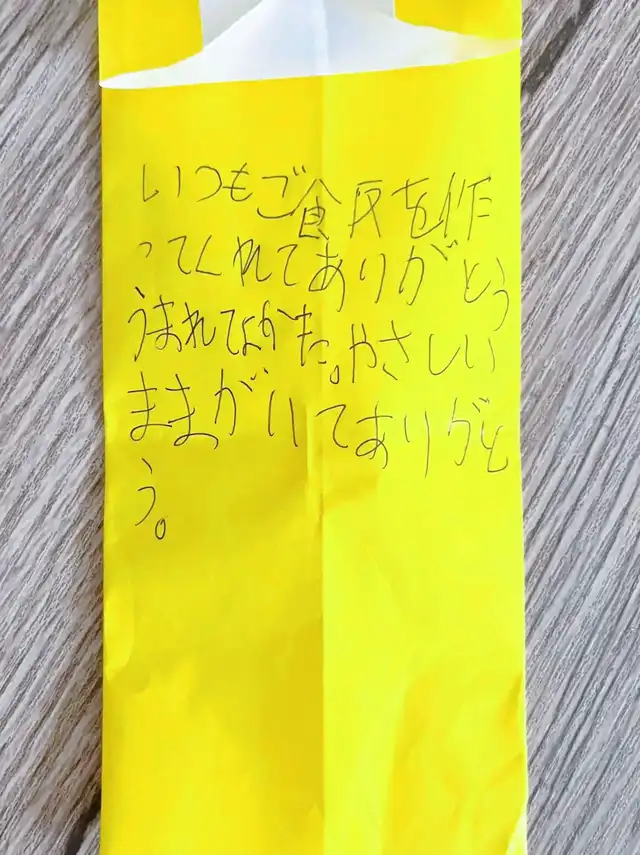 いつもご飯を作
ってくれてありがとう
うまれてよかた。やさしい
ままがいてありがと
う。